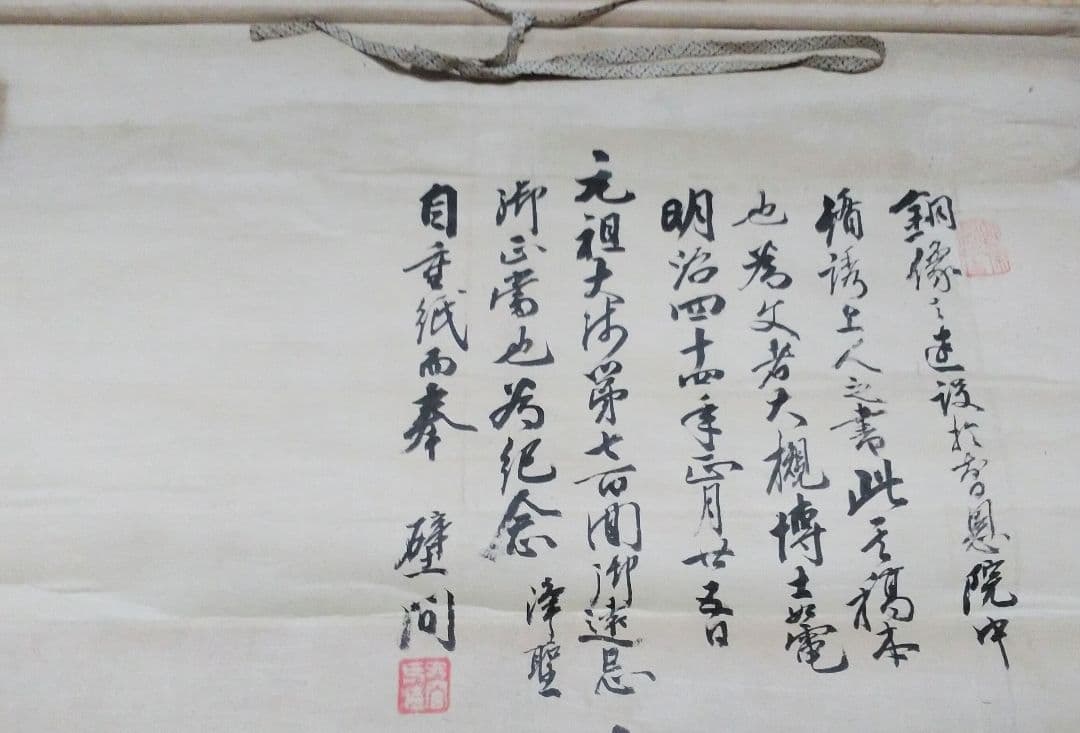 銅像之建設於智恩院中
循誘上人之書此其稿本
也為文者大槻博士如電
明治四十四年正月廿五日
元祖大師第七百閏御遠忌
御正當也為紀念 
自重紙而奉 壁间